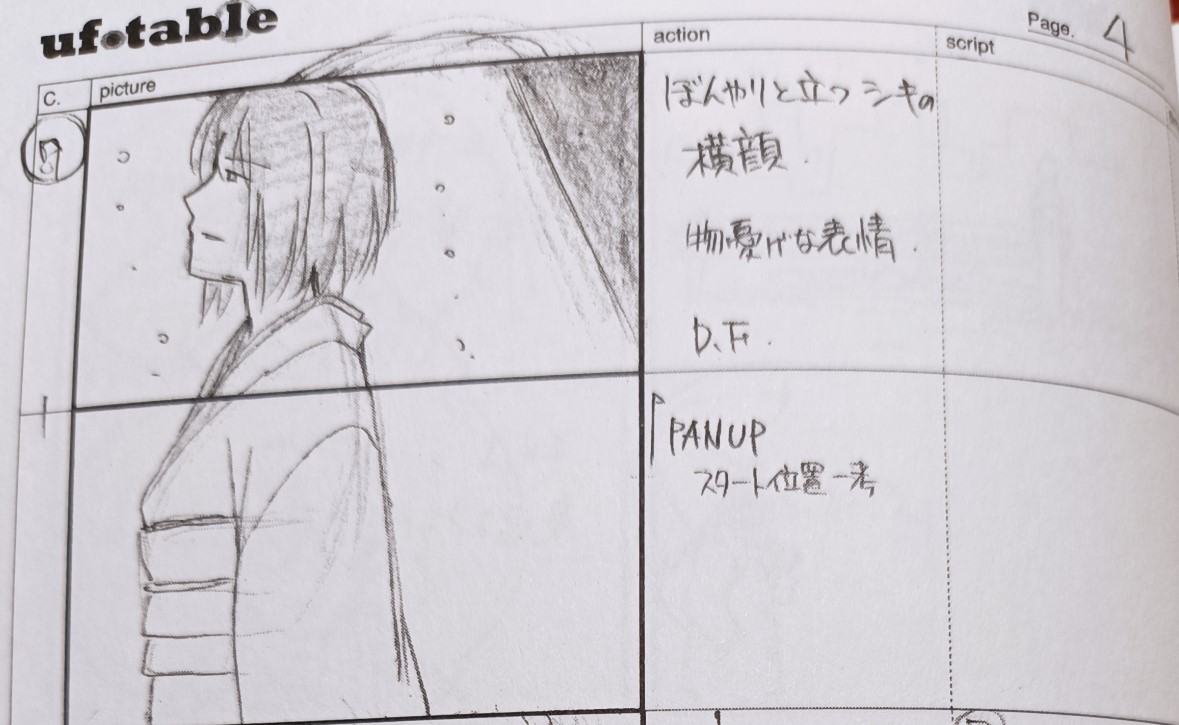 uf•table
Page. 4
C.
picture
action
script
ぼんやりと立つシキの
横顔.
物憂げな表情.
D.F.
PAN UP
スタート位置一考